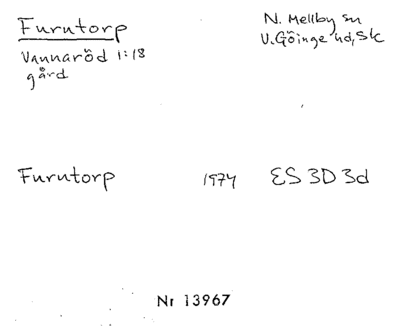 Furutorp
N. Mellby sn
Vannaröd 1:18
V. Göinge hd, Sk
gård
Furutorp 1974 ES 3D 3d
Nr 13967